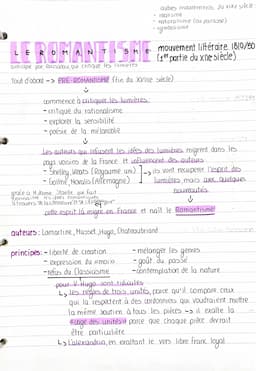 autres mouvements du XIXe siècle :
- réalisme
- naturalisme (ou parnasse)
- symbolisme
LE ROMANTISME mouvement littéraire 1810/50
(1ère partie du XIXe siècle)
anticipé par Rousseau qui critique les lumières
tout d'abord -> PRÉ-ROMANTISME (fin du XVIIIe siècle)
commence à critiquer les lumières:
- critique du rationalisme
- explorer la sensibilité
- poésie de la mélancolie
Les auteurs qui refusent les idées des lumières migrent dans les
pays voisins de la France et influencent des auteurs
- Shelley, Keats (Royaume uni)
- Goethe, Novalis (Allemagne)
-> ils vont récupérer l'esprit des
lumières mais avec quelques
nouveautés
grâce à Madame de Staël
cet esprit là migre en France et naît le Romantisme!
auteurs : Lamartine, Musset, Hugo, Chateaubriand
principes: - liberté de création
- mélanger les genres
- expression du «moi»
- goût du passé
- refus du Classicisme
- contemplation de la nature
pour V. Hugo sont ridicules
-> les règles de trois unités, parce qu'il compare ceux
qui la respectent à des cordonniers qui voudraient mettre
la même soulier à tous les pieds -> il exalte la
«cage des unités» parce que chaque pièce devrait
être particulière
-> L'alexandrin, en exaltant le vers libre franc, loyal